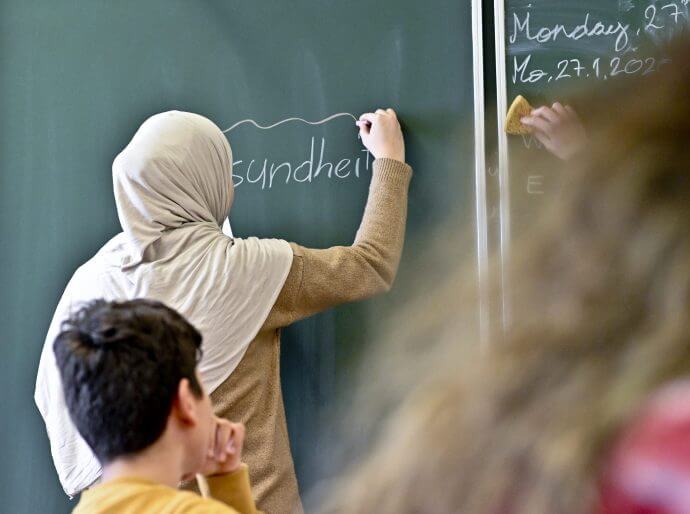 sundheit
Monday, 27
Mo, 27.1.202
E